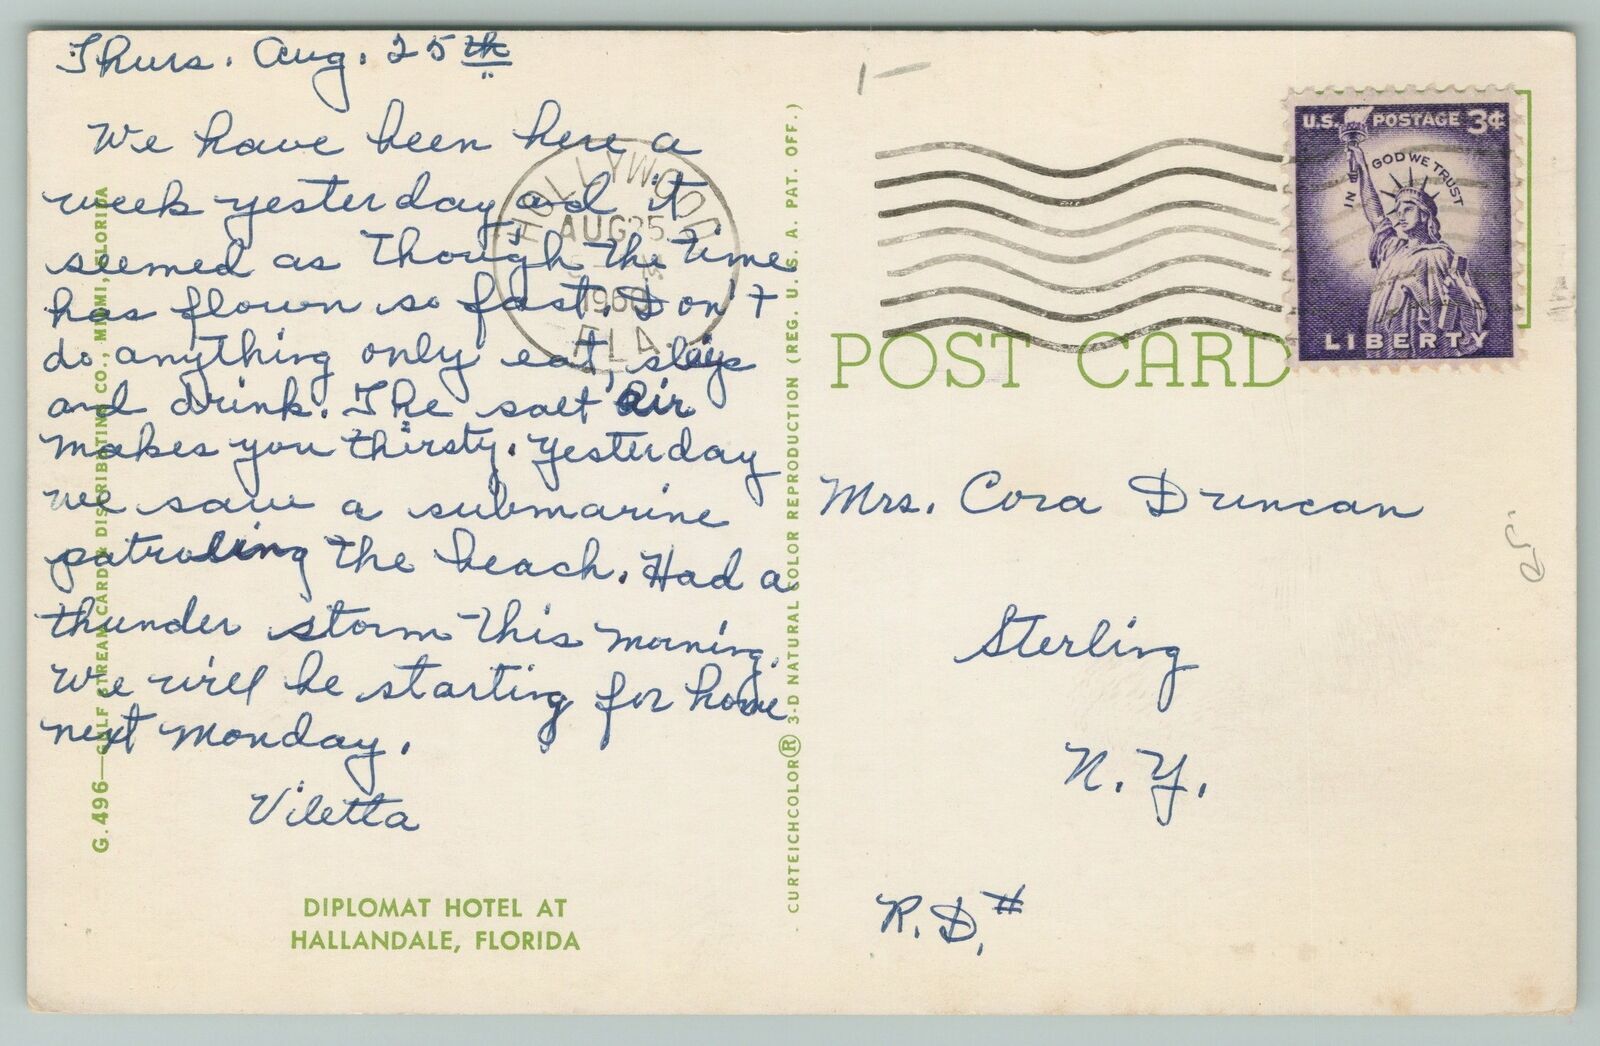 Thurs. Aug. 25th
We have been here a
week yesterday and it
seemed as though the time
has flown so fast. Don't
do anything only eat, sleep
and drink. The salt air
makes you thirsty. Yesterday
we saw a submarine
patroling the beach. Had a
thunder storm this morning.
We will be starting for home
next Monday.
Viletta
DIPLOMAT HOTEL AT
HALLANDALE, FLORIDA
G.496—GULF STREAM CARD & DISTRIBUTING CO., MIAMI, FLORIDA
HOLLYWOOD
AUG 25
1960
FLA.
CURTEICHCOLOR® 3-D NATURAL COLOR REPRODUCTION (REG. U. S. A. PAT. OFF.)
1-
U.S. POSTAGE 3¢
IN GOD WE TRUST
LIBERTY
POST CARD
Mrs. Cora Duncan
Sterling
N.Y.
R.D.#